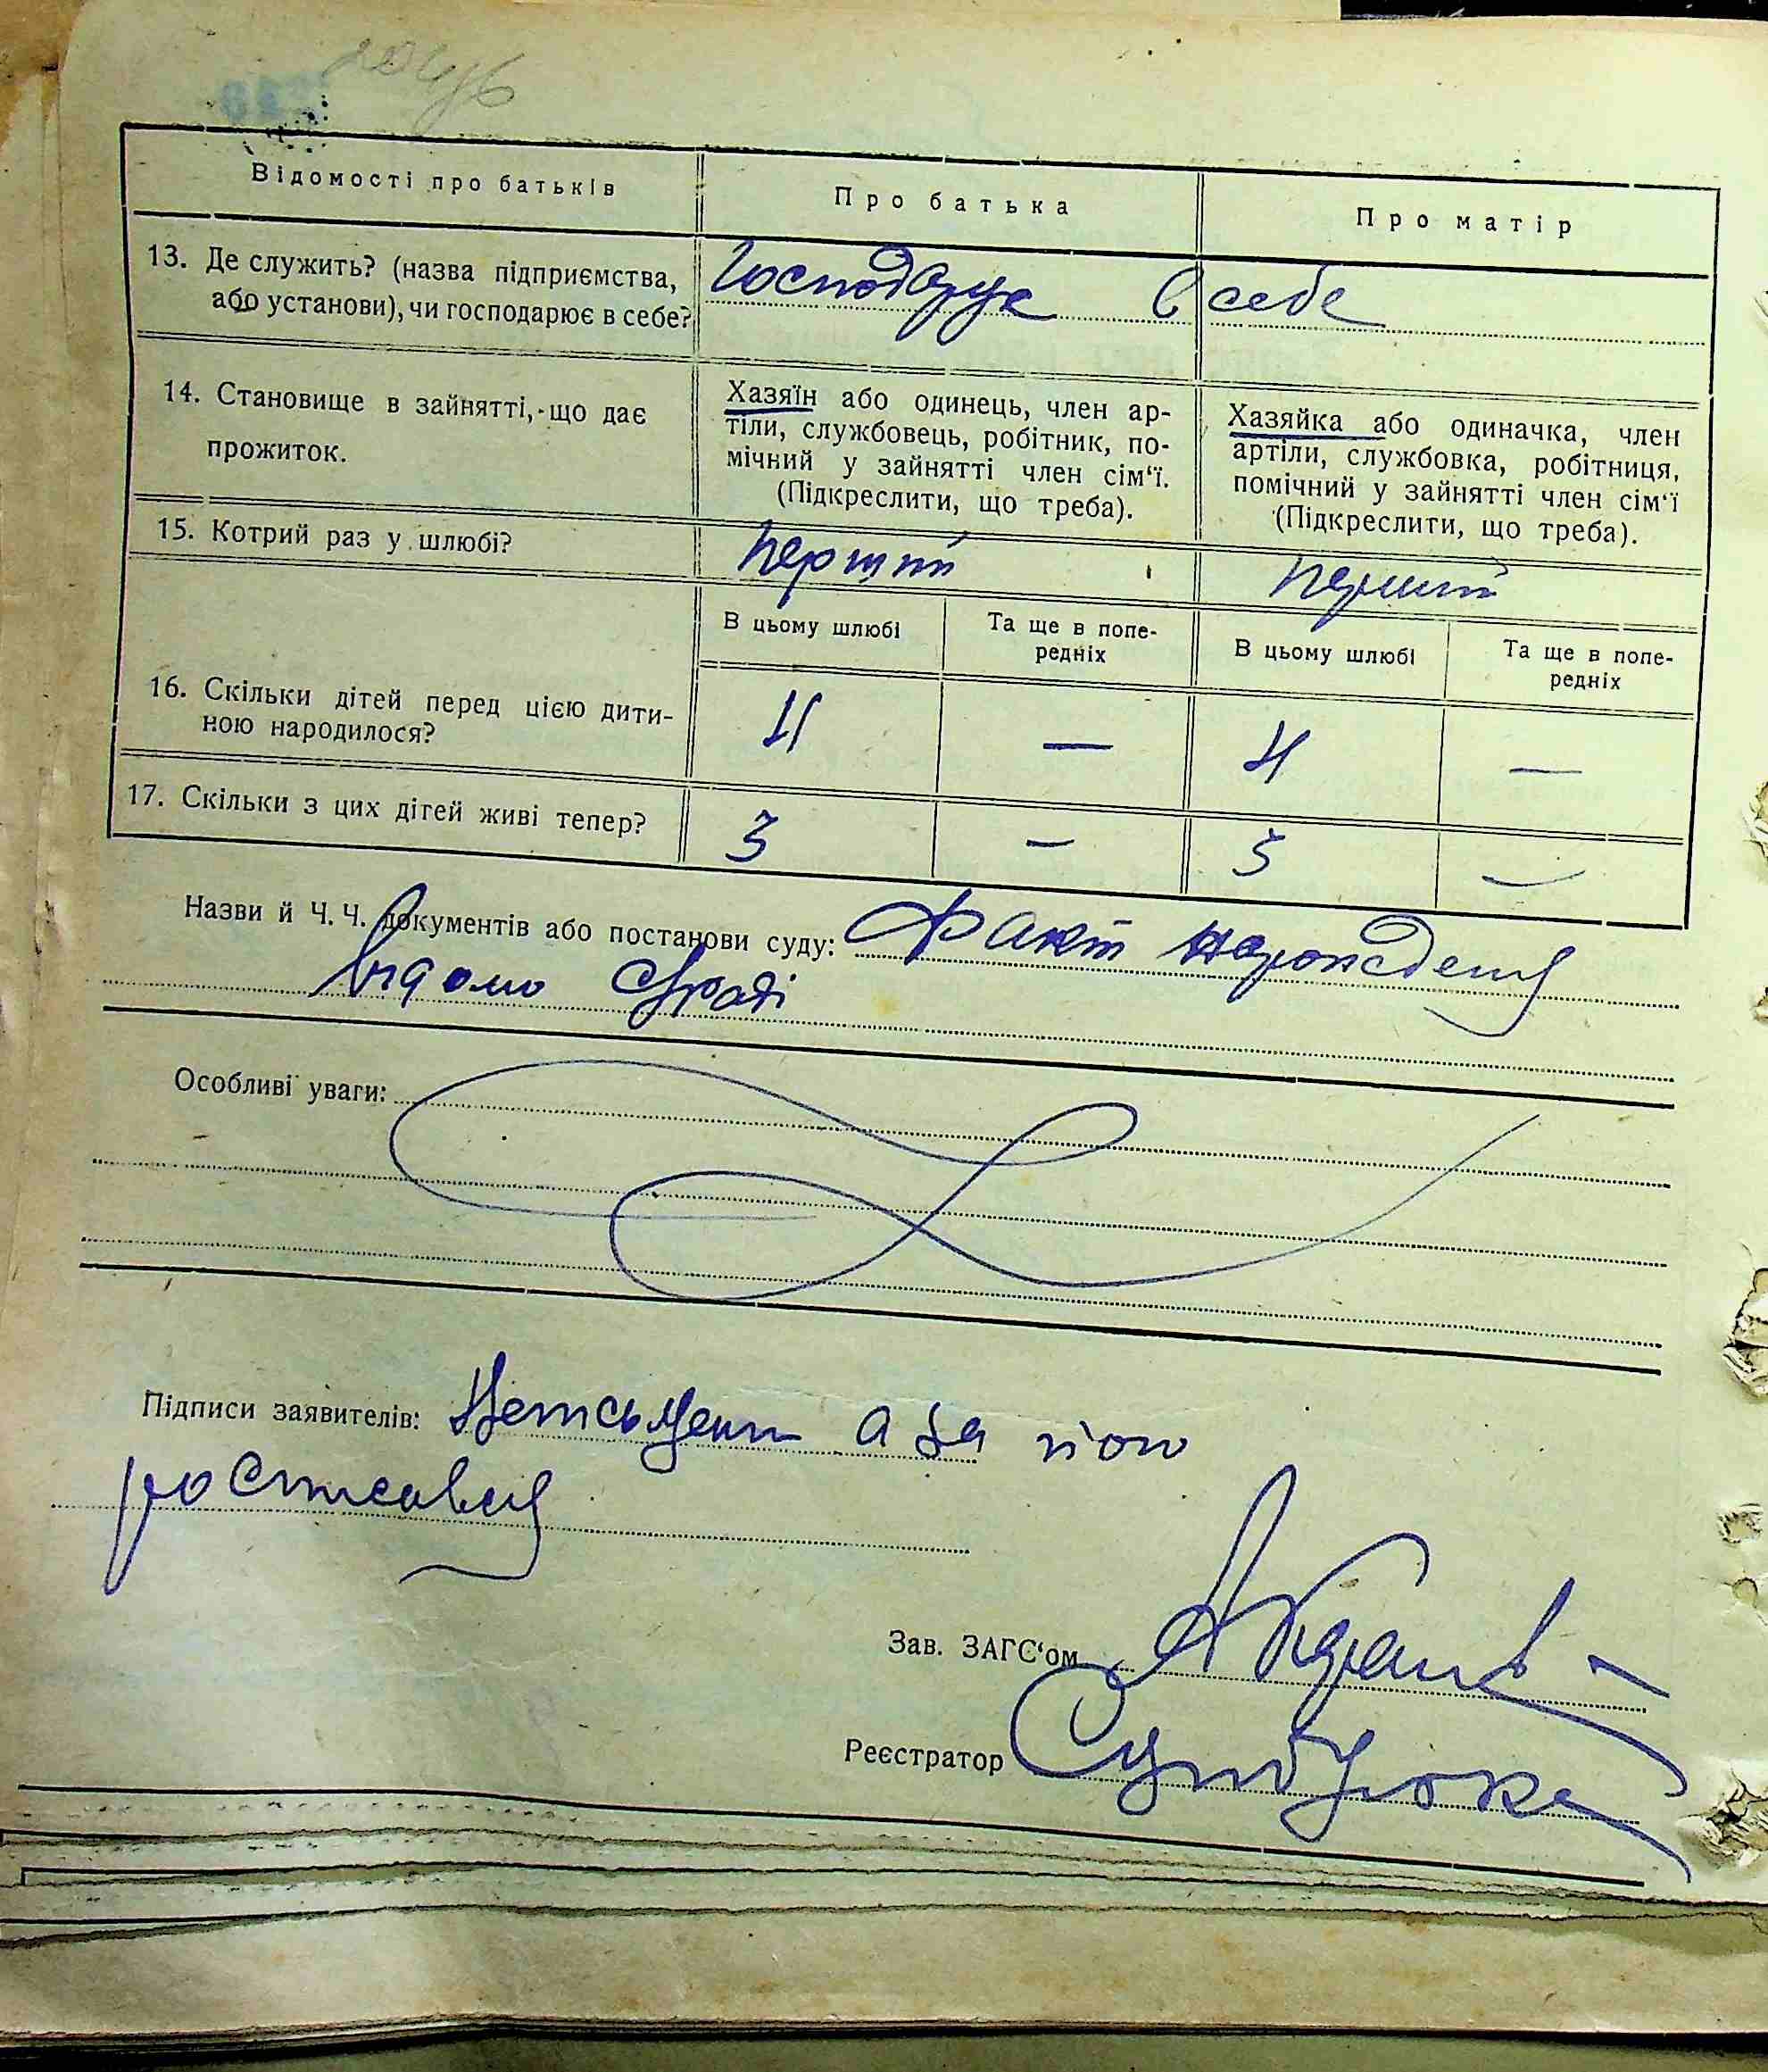 Відомості про батьків
Про батька
Про матір
13. Де служить? (назва підприємства,
або установи), чи господарює в себе?
Господарує в себе
14. Становище в зайнятті, що дає
прожиток.
Хазяїн або одинець, член ар-
тіли, службовець, робітник, по-
мічний у зайнятті член сім'ї.
(Підкреслити, що треба).
Хазяйка або одиначка, член
артіли, службовка, робітниця,
помічний у зайнятті член сім'ї
(Підкреслити, що треба).
15. Котрий раз у шлюбі?
перший
перший
В цьому шлюбі
Та ще в попе-
редніх
В цьому шлюбі
Та ще в попе-
редніх
16. Скільки дітей перед цією дити-
ною народилося?
4 — 4 —
17. Скільки з цих дітей живі тепер?
3 — 3 —
Назви й Ч. Ч. документів або постанови суду: Факт народження
відомо с/раді
Особливі уваги:
Підписи заявителів: а за його
Зав. ЗАГС'ом
Реєстратор